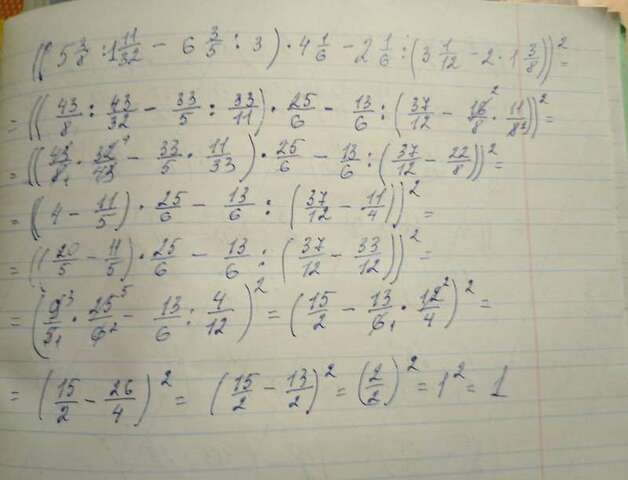 ((5 3/8 : 1 11/32 − 6 3/5 : 3) · 4 1/6 − 2 1/6 : (3 1/12 − 2 · 1 3/8))² =
= ((43/8 : 43/32 − 33/5 : 33/11) · 25/6 − 13/6 : (37/12 − 16/8 · 11/8))² =
= ((43/8 · 32/43 − 33/5 · 11/33) · 25/6 − 13/6 : (37/12 − 22/8))² =
= ((4 − 11/5) · 25/6 − 13/6 : (37/12 − 11/4))² =
= ((20/5 − 11/5) · 25/6 − 13/6 : (37/12 − 33/12))² =
= (9/5 · 25/6 − 13/6 : 4/12)² = (15/2 − 13/6 · 12/4)² =
= (15/2 − 26/4)² = (15/2 − 13/2)² = (2/2)² = 1² = 1